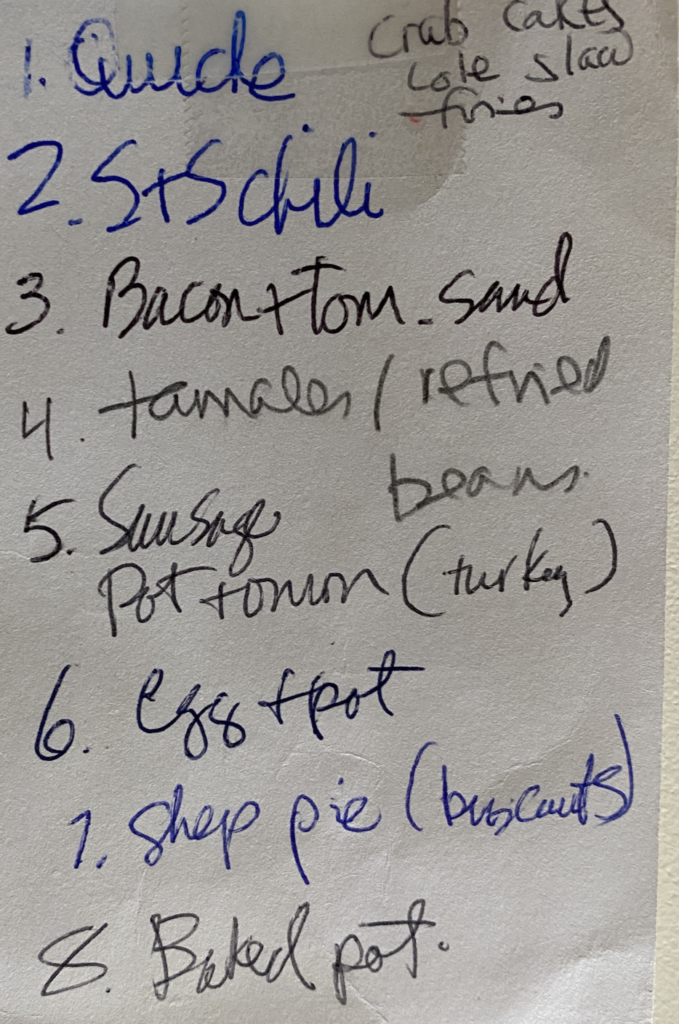 1. Quiche
Crab Cakes
Cole slaw
fries
2. S+S chili
3. Bacon + tom. sand
4. tamales / refried
beans.
5. Sausage
Pot + onion (turkey)
6. egg + pot
7. Shep pie (buscauts)
8. Baked pot.